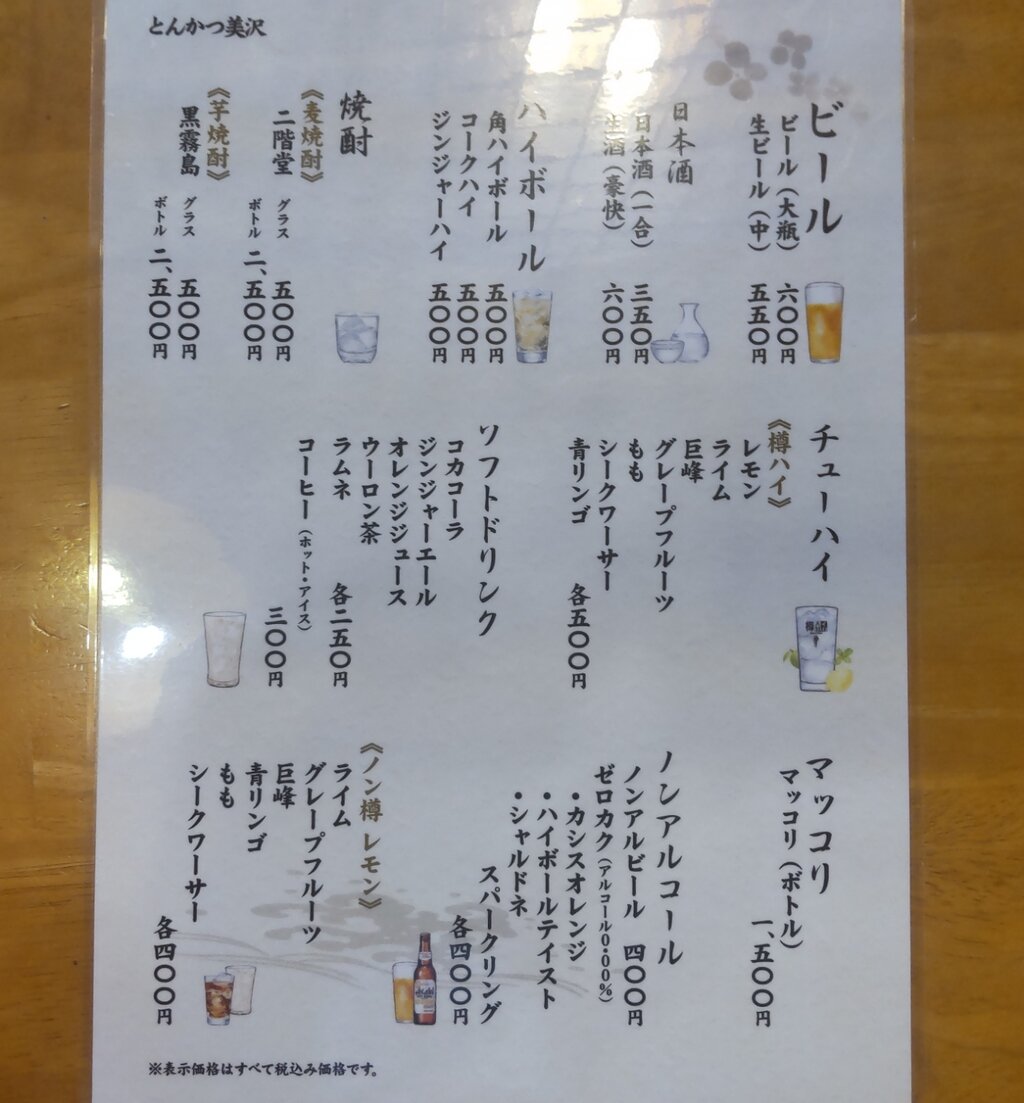 とんかつ美沢
ビール
ビール（大瓶） 六〇〇円
生ビール（中） 五五〇円
日本酒
日本酒（一合） 三五〇円
生酒（豪快） 六〇〇円
ハイボール
角ハイボール 五〇〇円
コークハイ 五〇〇円
ジンジャーハイ 五〇〇円
焼酎
《麦焼酎》
二階堂 グラス 五〇〇円
ボトル 二、五〇〇円
《芋焼酎》
黒霧島 グラス 五〇〇円
ボトル 二、五〇〇円
チューハイ
《樽ハイ》
レモン
ライム
巨峰
グレープフルーツ
もも
シークワーサー
青リンゴ 各五〇〇円
ソフトドリンク
コカコーラ
ジンジャーエール
オレンジジュース
ウーロン茶
ラムネ 各二五〇円
コーヒー（ホット・アイス）
三〇〇円
マッコリ
マッコリ（ボトル）
一、五〇〇円
ノンアルコール
ノンアルビール 四〇〇円
ゼロカク（アルコール0.00%）
・カシスオレンジ
・ハイボールテイスト
・シャルドネ
スパークリング
各四〇〇円
《ノン樽 レモン》
ライム
グレープフルーツ
巨峰
青リンゴ
もも
シークワーサー
各四〇〇円
※表示価格はすべて税込み価格です。